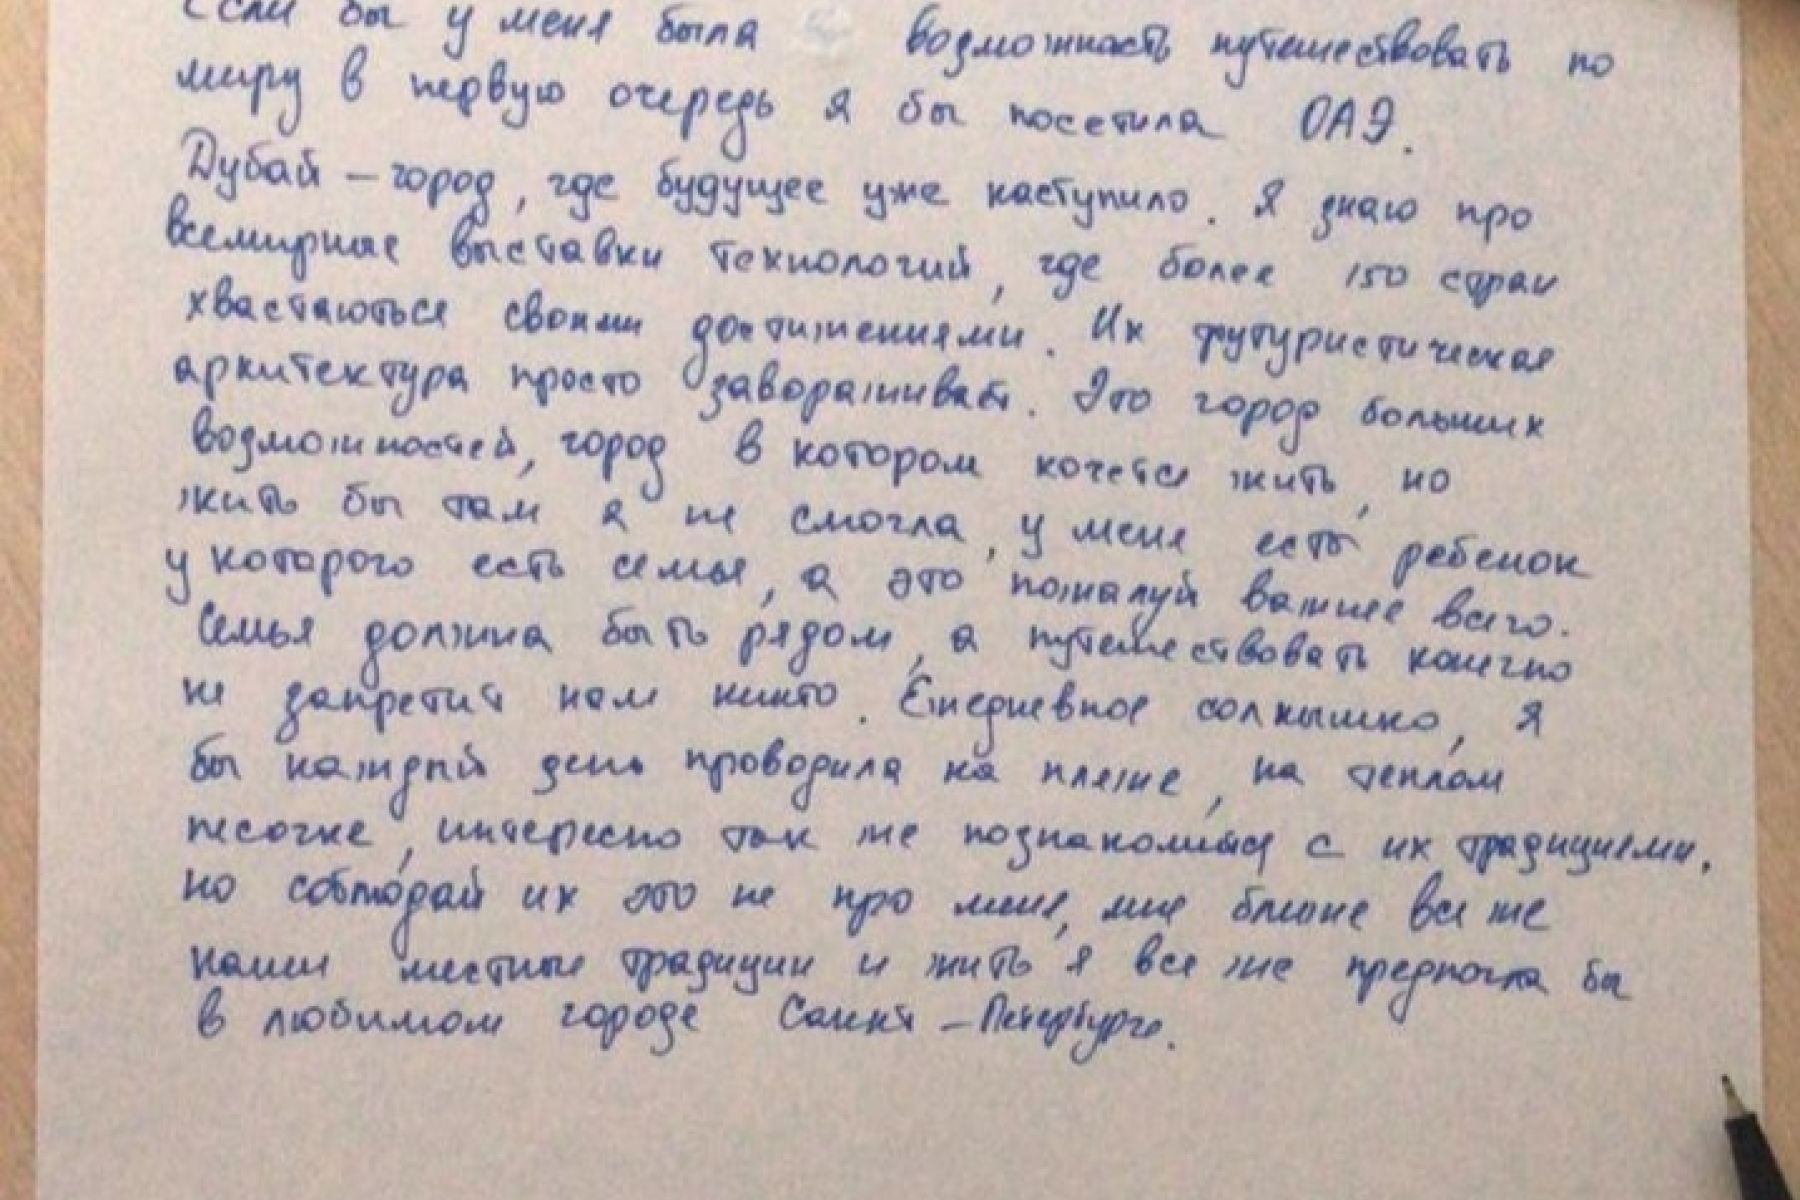 Если бы у меня была возможность путешествовать по
миру в первую очередь я бы посетила ОАЭ.
Дубай – город, где будущее уже наступило. Я знаю про
всемирные выставки технологий, где более 150 стран
хвастаються своими достижениями. Их футуристическая
архитектура просто завораживает. Это город больших
возможностей, город в котором хочется жить, но
жить бы там я не смогла, у меня есть ребенок
у которого есть семья, а это пожалуй важнее всего.
Семья должна быть рядом, а путешествовать конечно
не запретит нам никто. Ежедневное солнышко, я
бы каждый день проводила на пляже, на теплом
песочке, интересно так же познакомиться с их традициями.
но соблюдай их это не про меня, мне ближе все же
наши местные традиции и жить я все же предпочла бы
в любимом городе Санкт – Петербурге.